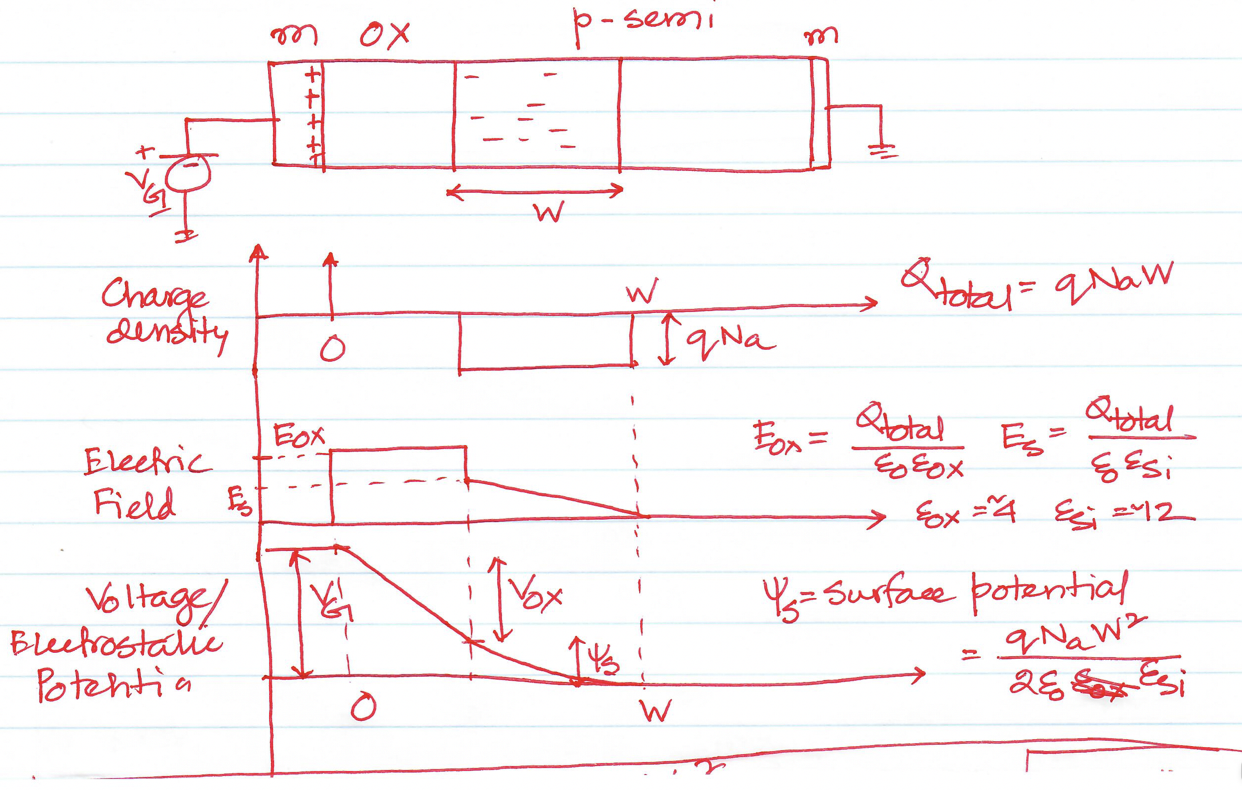 m OX p-semi m
+ - -
+ -
+ - - -
+ - - -
+
+ -
V_G
W
Charge density
0
W
qNa
Q_total = qNaW
Electric Field
E_OX
E_s
E_OX = Q_total / ε₀ε_OX E_s = Q_total / ε₀ε_Si
ε_OX = ~4 ε_Si = ~12
Voltage/
Electrostatic
Potentia
V_G
V_OX
ψ_s
0
W
ψ_s = Surface potential
= qNaW² / 2ε₀ ε_Si